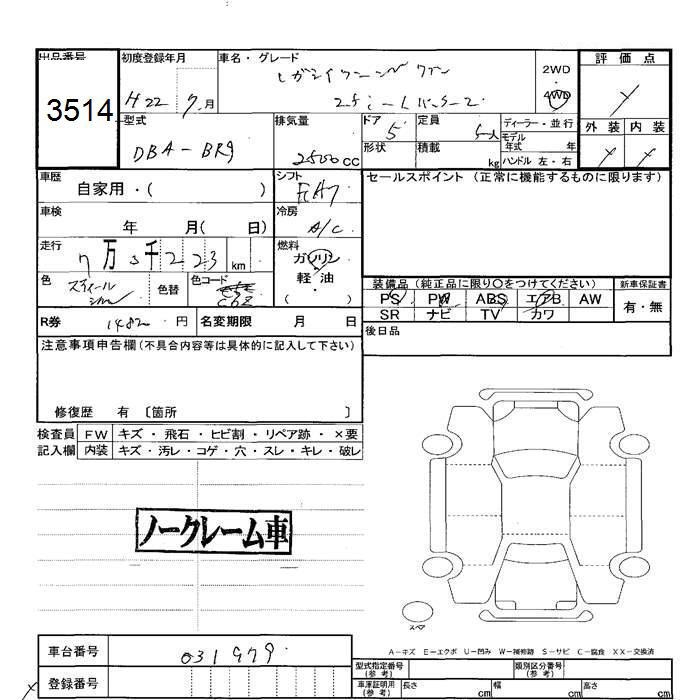 出品番号
3514
初度登録年月
H22 7月
車名・グレード
レガシィツーリングワゴン
2WD
4WD
評価点
外装 内装
型式
DBA-BR9
排気量
2500cc
ドア
5
形状
定員
積載
kg
ディーラー・並行
モデル年式 年
ハンドル 左・右
車歴
自家用・( )
シフト
FA7
セールスポイント (正常に機能するものに限ります)
車検
年 月( 日)
冷房
A/C
走行
7万 千223km
燃料
ガソリン
軽油
( )
色
スティール
色替
色コード
装備品 (純正品に限り〇をつけてください)
PS PW ABS エアB AW
SR ナビ TV カワ
新車保証書
有・無
R券
円
名変期限 月 日
後日品
注意事項申告欄(不具合内容等は具体的に記入して下さい)
修復歴 有 〔箇所 〕
検査員 FW キズ・飛石・ヒビ割・リペア跡・×要
記入欄 内装 キズ・汚レ・コゲ・穴・スレ・キレ・破レ
ノークレーム車
スペア
A－キズ E－エクボ U－凹み W－補修跡 S－サビ C－腐食 XX－交換済
車台番号
031979
登録番号
型式指定番号
(参考)
類別区分番号
(参考)
車庫証明用
(参考)
長さ cm 幅 cm 高さ cm